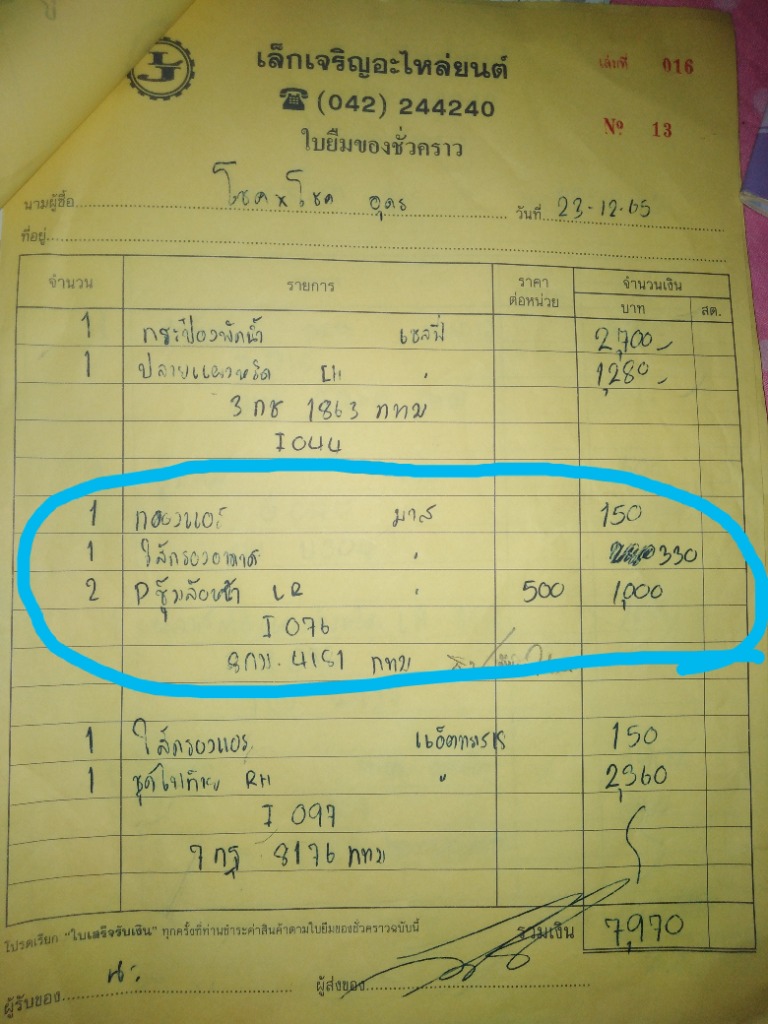 เล็กเจริญอะไหล่ยนต์ เล่มที่ 016
☎ (042) 244240
Nº 13
ใบยืมของชั่วคราว
นามผู้ซื้อ โชค x โชค อุดร วันที่ 23-12-65
ที่อยู่
จำนวน รายการ ราคาต่อหน่วย จำนวนเงิน
บาท สต.
1 กระป๋องพักน้ำ 2,700 -
1 1,280 -
3 กช 1863 กทม
I 044
1 กรองแอร์ มาส 150
1 ไส้กรองอากาศ " 330
2 Pซุ้มล้อหน้า LR " 500 1,000
I 076
8กว. 4151 กทม
1 ไส้กรองแอร์ 150
1 ชุดไฟท้าย RH " 2,360
I 097
7 กฐ 8176 กทม
โปรดเรียก "ใบเสร็จรับเงิน" ทุกครั้งที่ท่านชำระค่าสินค้าตามใบยืมของชั่วคราวฉบับนี้ รวมเงิน 7,970
ผู้รับของ ผู้ส่งของ